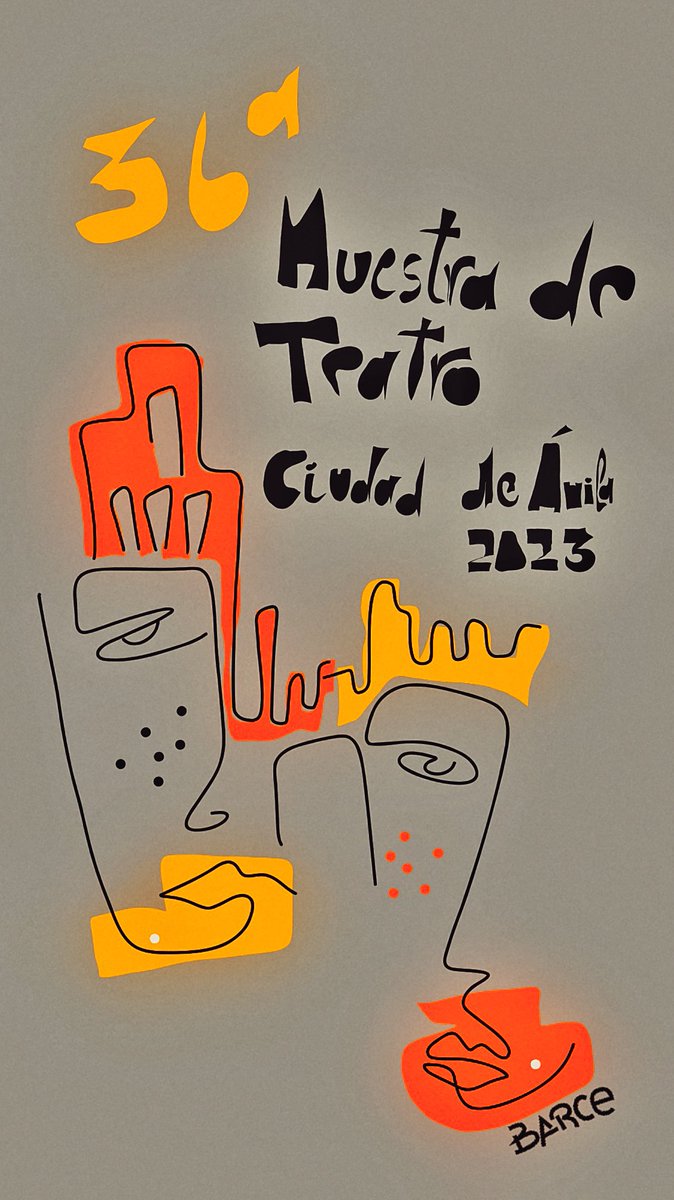 36ª
Muestra de
Teatro
Ciudad de Ávila
2023
BARCE